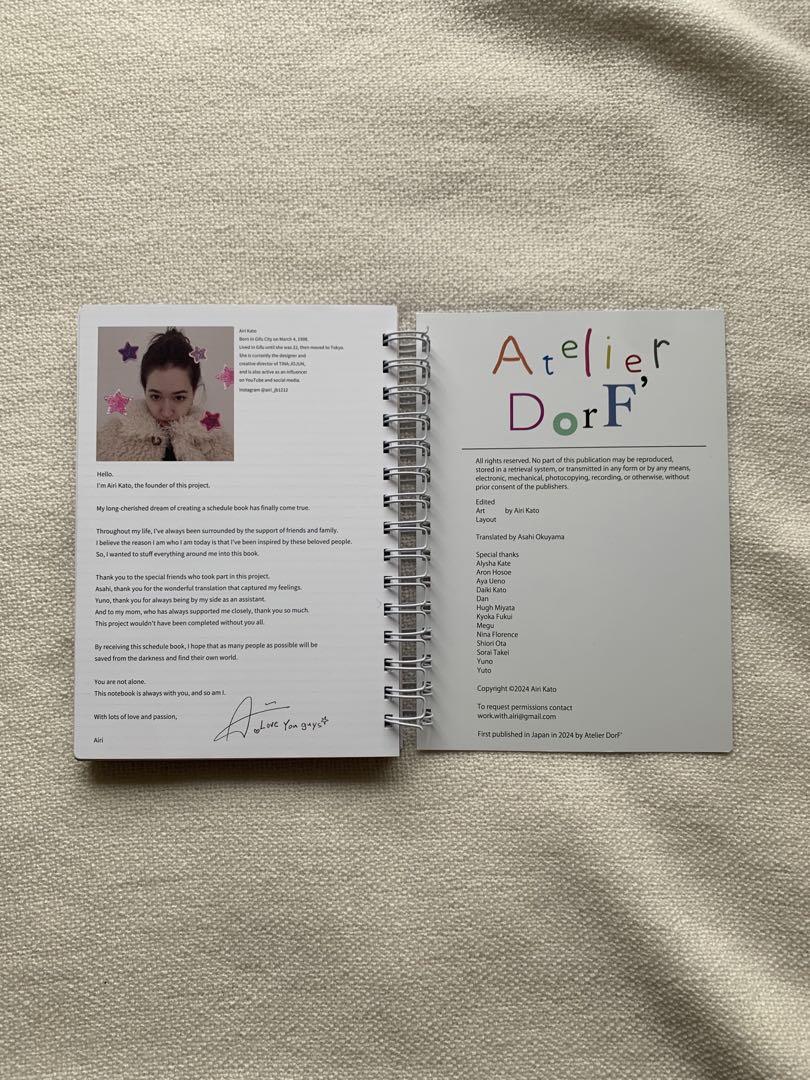 Airi Kato
Born in Gifu City on March 4, 1998.
Lived in Gifu until she was 22, then moved to Tokyo.
She is currently the designer and
creative director of TINA:JOJUN,
and is also active as an influencer
on YouTube and social media.
Instagram @airi_jb1212
Hello.
I'm Airi Kato, the founder of this project.
My long-cherished dream of creating a schedule book has finally come true.
Throughout my life, I've always been surrounded by the support of friends and family.
I believe the reason I am who I am today is that I've been inspired by these beloved people.
So, I wanted to stuff everything around me into this book.
Thank you to the special friends who took part in this project.
Asahi, thank you for the wonderful translation that captured my feelings.
Yuno, thank you for always being by my side as an assistant.
And to my mom, who has always supported me closely, thank you so much.
This project wouldn't have been completed without you all.
By receiving this schedule book, I hope that as many people as possible will be
saved from the darkness and find their own world.
You are not alone.
This notebook is always with you, and so am I.
With lots of love and passion,
Love You guys
Airi
Atelier
DorF'
All rights reserved. No part of this publication may be reproduced,
stored in a retrieval system, or transmitted in any form or by any means,
electronic, mechanical, photocopying, recording, or otherwise, without
prior consent of the publishers.
Edited
Art by Airi Kato
Layout
Translated by Asahi Okuyama
Special thanks
Alysha Kate
Aron Hosoe
Aya Ueno
Daiki Kato
Dan
Hugh Miyata
Kyoka Fukui
Megu
Nina Florence
Shiori Ota
Sorai Takei
Yuno
Yuto
Copyright ©2024 Airi Kato
To request permissions contact
work.with.airi@gmail.com
First published in Japan in 2024 by Atelier DorF'